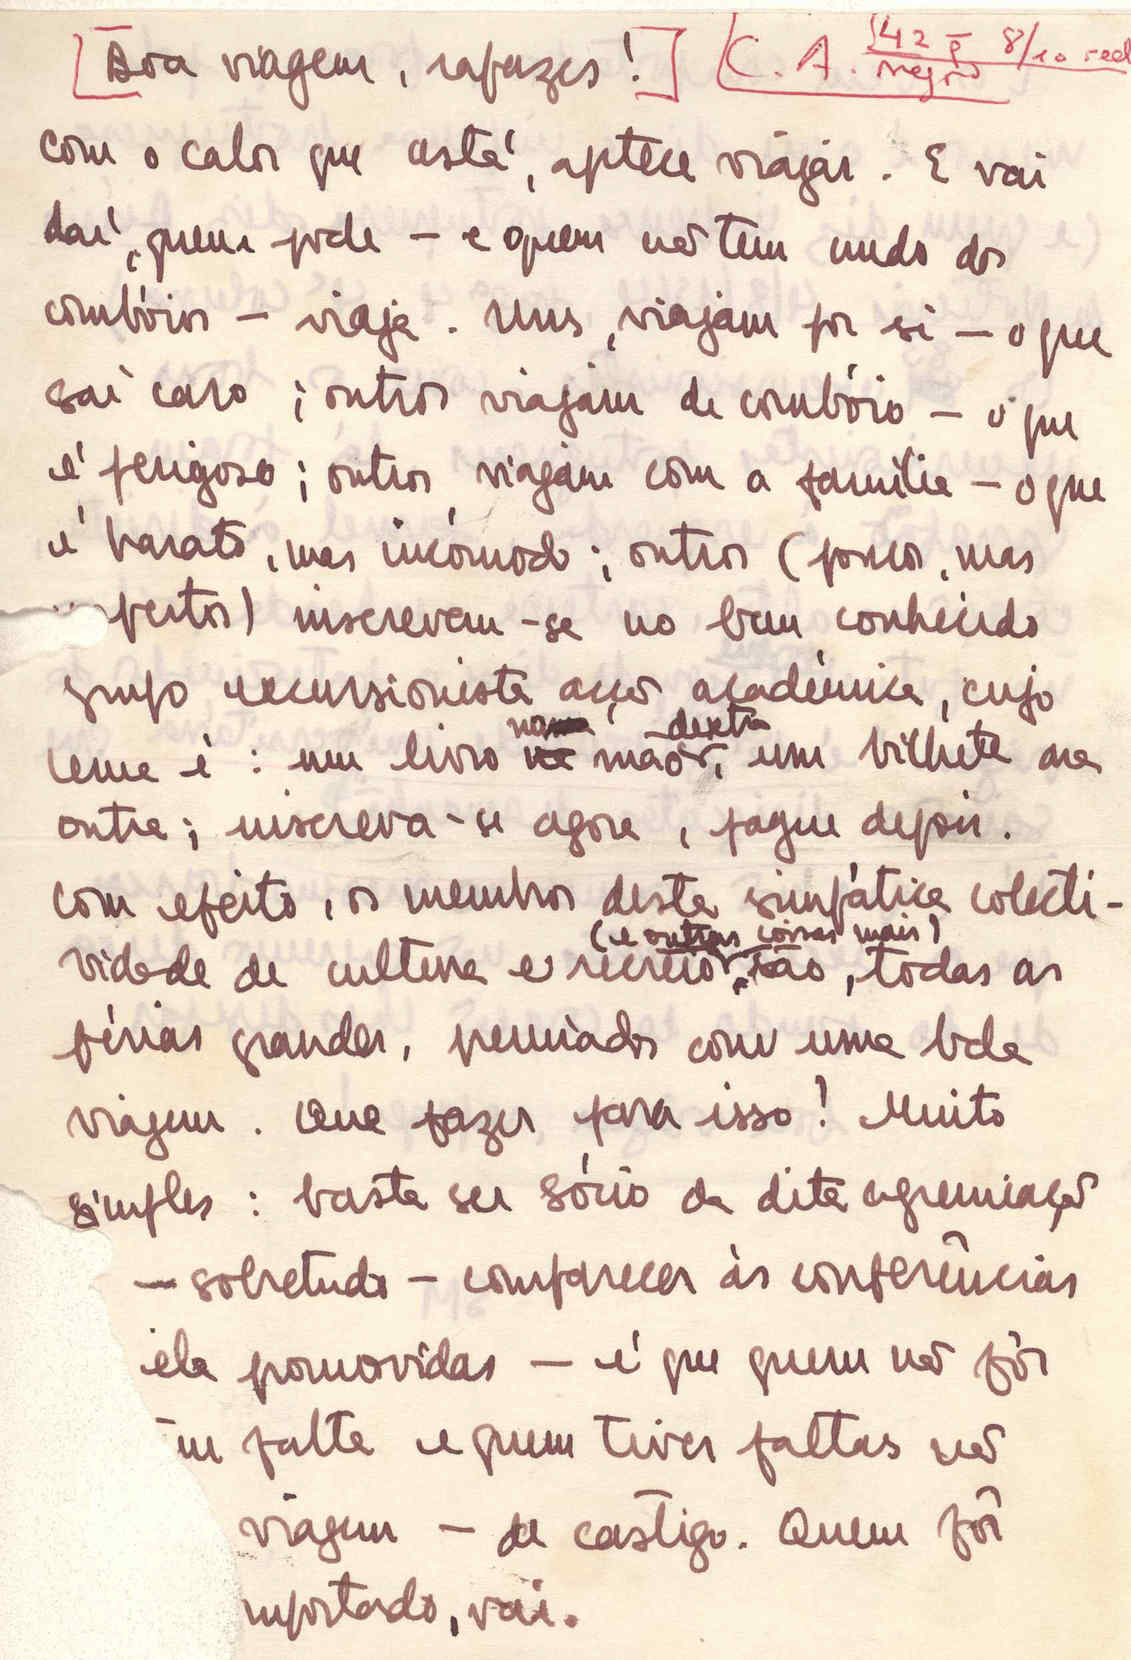 Boa viagem, rapazes! C. A. 142 P 8/10 red
negro
com o calor que está, aptece viajar. E vai
daí, quem pode — e quem não tem medo dos
combóios — viaja. Uns, viajam por si — o que
sai caro; outros viajam de combóio — o que
é perigoso; outros viajam com a família — o que
é barato, mas incómodo; outros (poucos, mas
pertos) inscrevem-se no bem conhecido
grupo excursionista acção académica, cujo
lema é: um livro na mão dextra, um bilhete na
outra; inscreva-se agora, pague depois.
Com efeito, os membros desta simpática colecti-
vidade de cultura e recreio (e outras coisas mais) são, todas as
férias grandes, premiados com uma bela
viagem. Que fazer para isso! Muito
simples: basta ser sócio da dita agremiação
— sobretudo — comparecer às conferências
ela promovidas — é que quem não fôr
em falta e quem tiver faltas não
viagem — de castigo. Quem fôr
mportado, vai.